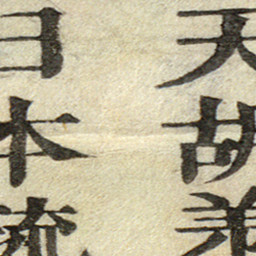 天胡
日木流